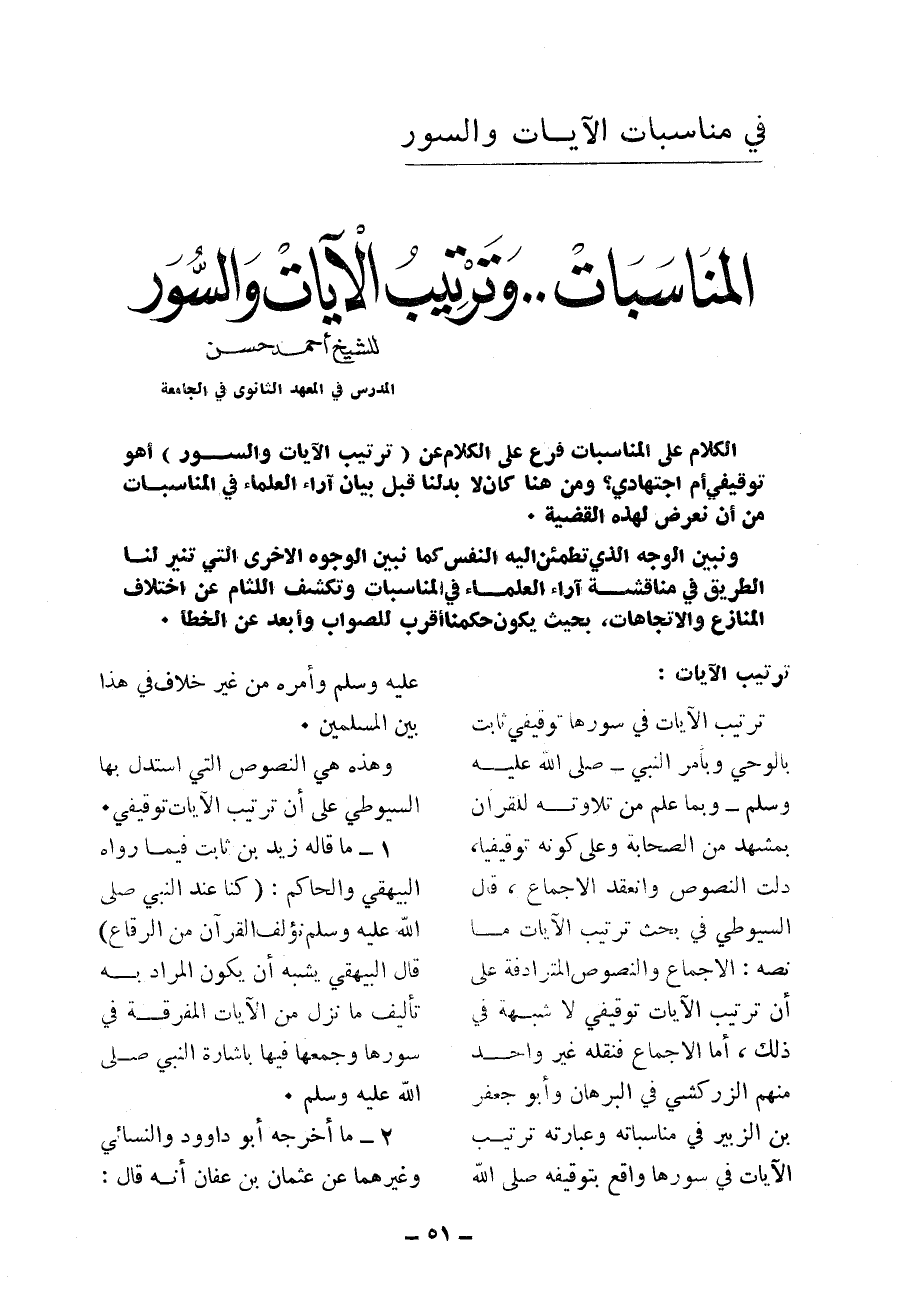 في مناسبات الآيات والسور
المناسَبَاتْ .. وَتَرْتيبُ الْآياتْ وَالسُّوَر
للشيخ أحمد حسن
المدرس في المعهد الثانوى في الجامعة
الكلام على المناسبات فرع على الكلام عن ( ترتيب الآيات والسور ) أهو
توقيفي أم اجتهادي؟ ومن هنا كان لا بد لنا قبل بيان آراء العلماء في المناسبات
من أن نعرض لهذه القضية ٠
ونبين الوجه الذي تطمئن اليه النفس كما نبين الوجوه الاخرى التي تنير لنا
الطريق في مناقشة آراء العلماء في المناسبات وتكشف اللثام عن اختلاف
المنازع والاتجاهات، بحيث يكون حكمنا أقرب للصواب وأبعد عن الخطأ ٠
ترتيب الآيات :
ترتيب الآيات في سورها توقيفي ثابت
بالوحي وبأمر النبي ــ صلى الله عليه
وسلم ــ وبما علم من تلاوته للقرآن
بمشهد من الصحابة وعلى كونه توقيفيا،
دلت النصوص وانعقد الاجماع ، قال
السيوطي في بحث ترتيب الآيات ما
نصه : الاجماع والنصوص المترادفة على
أن ترتيب الآيات توقيفي لا شبهة في
ذلك ، أما الاجماع فنقله غير واحد
منهم الزركشي في البرهان وأبو جعفر
بن الزبير في مناسباته وعبارته ترتيب
الآيات في سورها واقع بتوقيفه صلى الله
عليه وسلم وأمره من غير خلاف في هذا
بين المسلمين ٠
وهذه هي النصوص التي استدل بها
السيوطي على أن ترتيب الآيات توقيفي٠
١ ــ ما قاله زيد بن ثابت فيما رواه
البيهقي والحاكم : ( كنا عند النبي صلى
الله عليه وسلم نؤلف القرآن من الرقاع)
قال البيهقي يشبه أن يكون المراد به
تأليف ما نزل من الآيات المفرقة في
سورها وجمعها فيها باشارة النبي صلى
الله عليه وسلم ٠
٢ ــ ما أخرجه أبو داوود والنسائي
وغيرهما عن عثمان بن عفان أنه قال :
ــ ٥١ ــ